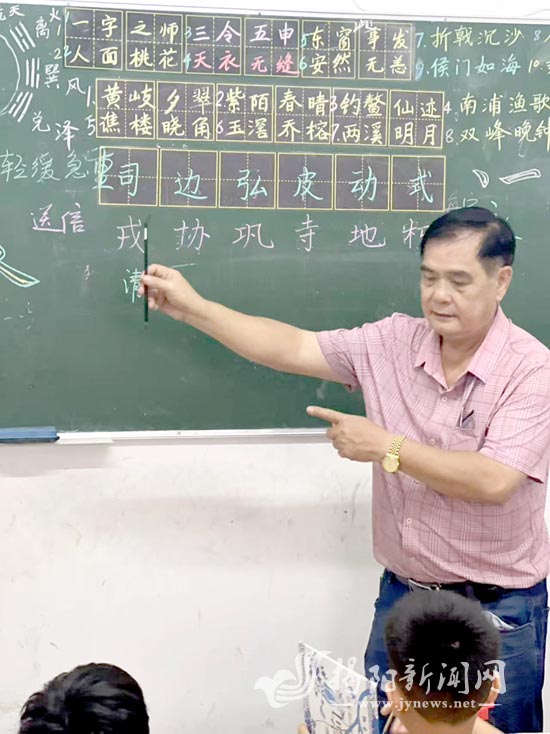 一字之师 三令五申 5东窗事发 7.折戟沉沙 8.
2人面桃花 4天衣无缝 6安然无恙 9.侯门如海 10.
火
离
巽
风
兑 泽
1.黄岐夕翠 2紫陌春晴 3钓鳌仙迹 4.南浦渔歌
5谯楼晓角 6玉滘乔榕 7两溪明月 8.双峰晚钟
轻缓急重
司边弘皮动式
送信
戎协巩寺地
清
揭阳新闻网
www.jynews.net